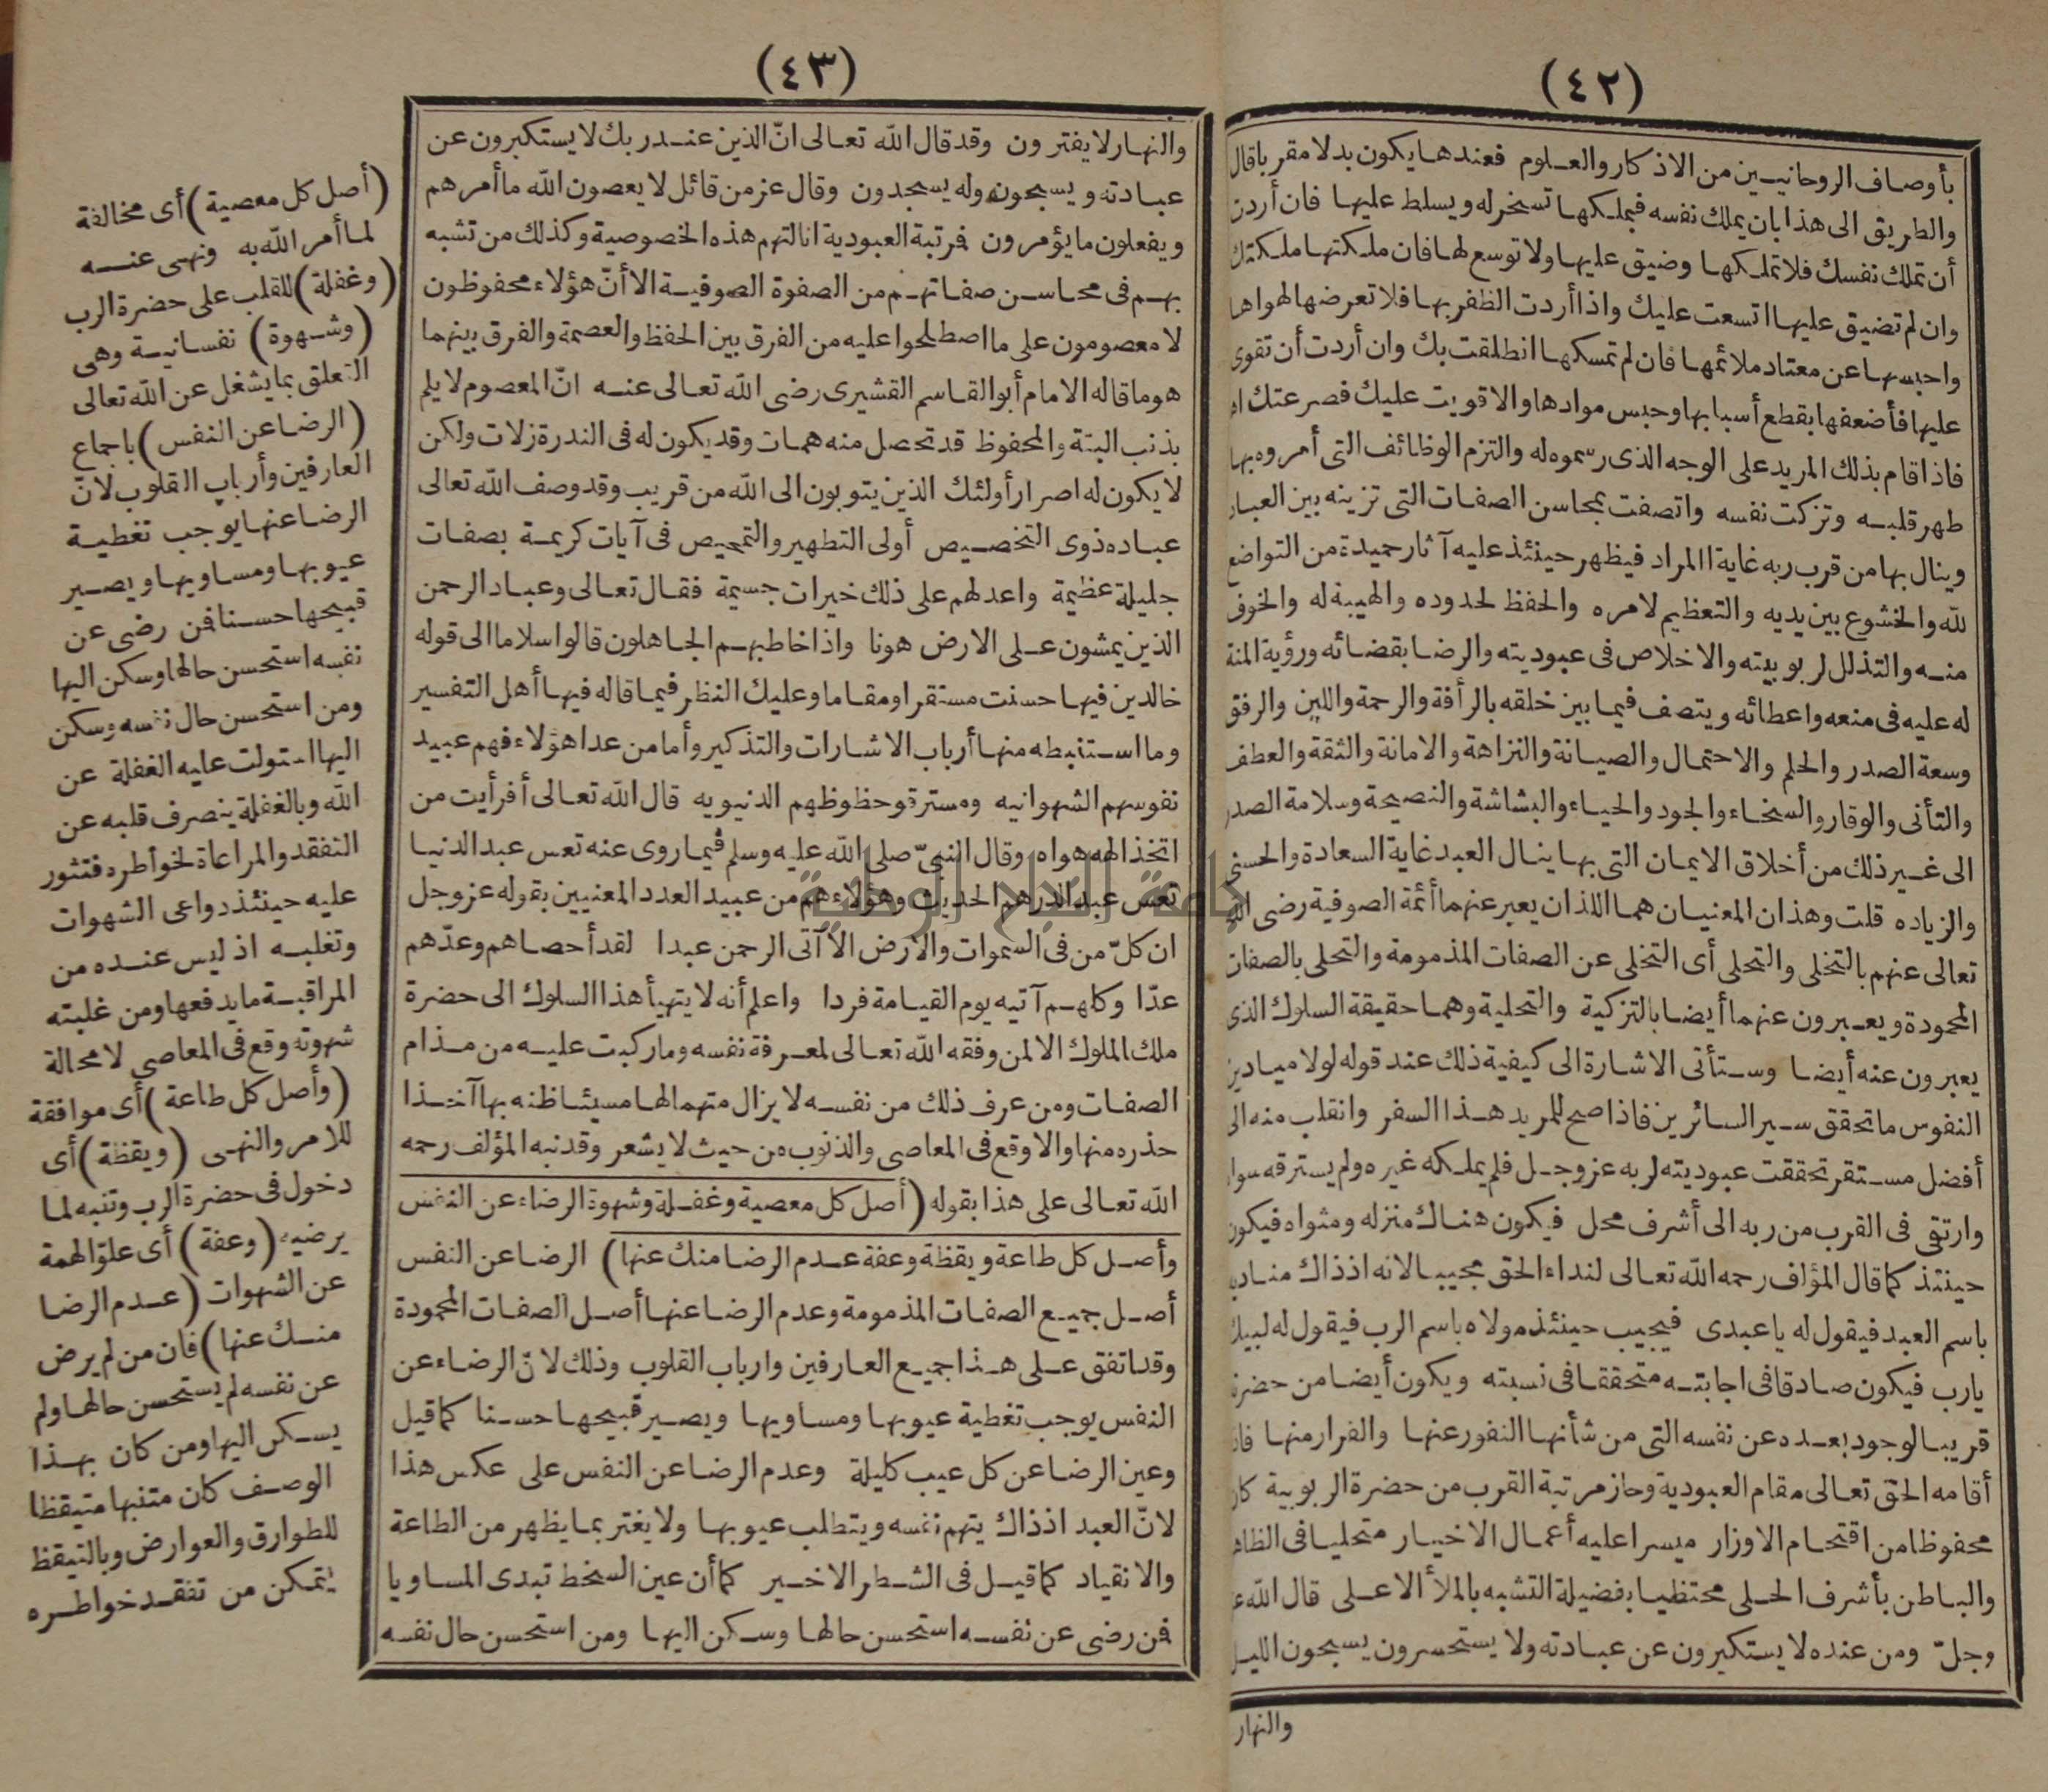 (٤٢)
بأوصاف الروحانيين من الاذكار والعلوم فعندها يكون بدلا مقربا قال
والطريق الى هذا بان يملك نفسه فيملكها تسخر له ويسلط عليها فان أردت
أن تملك نفسك فلا تملكها وضيق عليها ولا توسع لها فان ملكتها ملكتك
وان لم تضيق عليها اتسعت عليك واذا أردت الظفر بها فلا تعرضها لهواها
واحبسها عن معتاد ملائمها فان لم تمسكها انطلقت بك وان أردت أن تقوى
عليها فأضعفها بقطع أسبابها وحبس موادها والا قويت عليك فصرعتك اه
فاذا قام بذلك المريد على الوجه الذى رسموه له والتزم الوظائف التى أمروه بها
طهر قلبه وتزكت نفسه واتصفت بمحاسن الصفات التى تزينه بين العباد
وينال بها من قرب ربه غاية المراد فيظهر حينئذ عليه آثار حميدة من التواضع
لله والخشوع بين يديه والتعظيم لامره والحفظ لحدوده والهيبة له والخوف
منه والتذلل لربوبيته والاخلاص فى عبوديته والرضا بقضائه ورؤية المنة
له عليه فى منعه واعطائه ويتصف فيما بين خلقه بالرأفة والرحمة واللين والرفق
وسعة الصدر والحلم والاحتمال والصيانة والنزاهة والامانة والثقة والعطف
والتأنى والوقار والسخاء والجود والحياء والبشاشة والنصيحة وسلامة الصدر
الى غير ذلك من أخلاق الايمان التى بها ينال العبد غاية السعادة والحسنى
والزياده قلت وهذان المعنيان هما اللذان يعبر عنهما أئمة الصوفية رضى الله
تعالى عنهم بالتخلى والتحلى أى التخلى عن الصفات المذمومة والتحلى بالصفات
المحمودة ويعبرون عنهما أيضا بالتزكية والتحلية وهما حقيقة السلوك الذى
يعبرون عنه أيضا وستأتى الاشارة الى كيفية ذلك عند قوله لولا ميادين
النفوس ما تحقق سير السائرين فاذا صح للمريد هذا السفر وانقلب منه الى
أفضل مستقر تحققت عبوديته لربه عزوجل فلم يملكه غيره ولم يسترقه سواه
وارتقى فى القرب من ربه الى أشرف محل فيكون هناك منزله ومثواه فيكون
حينئذ كما قال المؤلف رحمه الله تعالى لنداء الحق مجيبا لانه اذ ذاك مناديه
باسم العبد فيقول له يا عبدى فيجيب حينئذ مولاه باسم الرب فيقول له لبيك
يارب فيكون صادقا فى اجابته متحققا فى نسبته ويكون أيضا من حضرته
قريبا لوجود بعده عن نفسه التى من شأنها النفور عنها والفرار منها فاذا
أقامه الحق تعالى مقام العبودية وحاز مرتبة القرب من حضرة الربوبية كان
محفوظا من اقتحام الاوزار ميسرا عليه أعمال الاخيار متحليا فى الظاهر
والباطن بأشرف الحلى محتظيا بفضيلة التشبه بالملأ الاعلى قال الله عز
وجل ومن عنده لا يستكبرون عن عبادته ولا يستحسرون يسبحون الليل
والنهار
(٤٣)
والنهار لا يفترون وقد قال الله تعالى انّ الذين عند ربك لا يستكبرون عن
عبادته ويسبحونه وله يسجدون وقال عز من قائل لا يعصون الله ما أمرهم
ويفعلون ما يؤمرون فرتبة العبودية انالتهم هذه الخصوصية وكذلك من تشبه
بهم فى محاسن صفاتهم من الصفوة الصوفية الا أنّ هؤلاء محفوظون
لا معصومون على ما اصطلحوا عليه من الفرق بين الحفظ والعصمة والفرق بينهما
هو ما قاله الامام أبو القاسم القشيرى رضى الله تعالى عنه انّ المعصوم لا يلم
بذنب البتة والمحفوظ قد تحصل منه همات وقد يكون له فى الندرة زلات ولكن
لا يكون له اصرار أولئك الذين يتوبون الى الله من قريب وقد وصف الله تعالى
عباده ذوى التخصيص أولى التطهير والتمحيص فى آيات كريمة بصفات
جليلة عظيمة واعد لهم على ذلك خيرات جسيمة فقال تعالى وعباد الرحمن
الذين يمشون على الارض هونا واذا خاطبهم الجاهلون قالوا سلاما الى قوله
خالدين فيها حسنت مستقرا ومقاما وعليك النظر فيما قاله فيها أهل التفسير
وما استنبطه منها أرباب الاشارات والتذكير وأما من عدا هؤلاء فهم عبيد
نفوسهم الشهوانيه ومسترقو حظوظهم الدنيويه قال الله تعالى أفرأيت من
اتخذ الهه هواه وقال النبىّ صلى الله عليه وسلم فيما روى عنه تعس عبد الدنيا
تعس عبد الدرهم الحديث وهؤلاء هم من عبيد العدد المعنيين بقوله عز وجل
ان كلّ من فى السموات والارض الا آتى الرحمن عبدا لقد أحصاهم وعدّهم
عدّا وكلهم آتيه يوم القيامة فردا واعلم أنه لا يتهيأ هذا السلوك الى حضرة
ملك الملوك الا لمن وفقه الله تعالى لمعرفة نفسه وما ركبت عليه من مذام
الصفات ومن عرف ذلك من نفسه لا يزال متهما لها مسيئا ظنه بها آخذا
حذره منها والا وقع فى المعاصى والذنوب من حيث لا يشعر وقد نبه المؤلف رحمه
الله تعالى على هذا بقوله (أصل كل معصية وغفلة وشهوة الرضاء عن النفس
وأصل كل طاعة ويقظة وعفة عدم الرضا منك عنها) الرضا عن النفس
أصل جميع الصفات المذمومة وعدم الرضا عنها أصل الصفات المحمودة
وقد اتفق على هذا جميع العارفين وارباب القلوب وذلك لانّ الرضاء عن
النفس يوجب تغطية عيوبها ومساويها ويصير قبيحها حسنا كما قيل
وعين الرضا عن كل عيب كليلة وعدم الرضا عن النفس على عكس هذا
لانّ العبد اذ ذاك يتهم نفسه ويتطلب عيوبها ولا يغتر بما يظهر من الطاعة
والانقياد كما قيل فى الشطر الاخير كما أن عين السخط تبدى المساويا
فمن رضى عن نفسه استحسن حالها وسكن اليها ومن استحسن حال نفسه
(أصل كل معصية) أى مخالفة
لما أمر الله به ونهى عنه
(وغفلة) للقلب على حضرة الرب
(وشهوة) نفسانية وهى
التعلق بما يشغل عن الله تعالى
(الرضا عن النفس) باجماع
العارفين وأرباب القلوب لانّ
الرضا عنها يوجب تغطية
عيوبها ومساويها ويصير
قبيحها حسنا فمن رضى عن
نفسه استحسن حالها وسكن اليها
ومن استحسن حال نفسه وسكن
اليها استولت عليه الغفلة عن
الله وبالغفلة ينصرف قلبه عن
التفقد والمراعاة لخواطره فتثور
عليه حينئذ دواعى الشهوات
وتغلبه اذ ليس عنده من
المراقبة ما يدفعها ومن غلبته
شهوته وقع فى المعاصى لا محالة
(وأصل كل طاعة) أى موافقة
للامر والنهى (ويقظة) أى
دخول فى حضرة الرب وتنبه لما
يرضيه (وعفة) أى علوّ الهمة
عن الشهوات (عدم الرضا
منك عنها) فان من لم يرض
عن نفسه لم يستحسن حالها ولم
يسكن اليها ومن كان بهذا
الوصف كان متنبها متيقظا
للطوارق والعوارض وبالتيقظ
يتمكن من تفقد خواطره
جامعة النجاح الوطنية